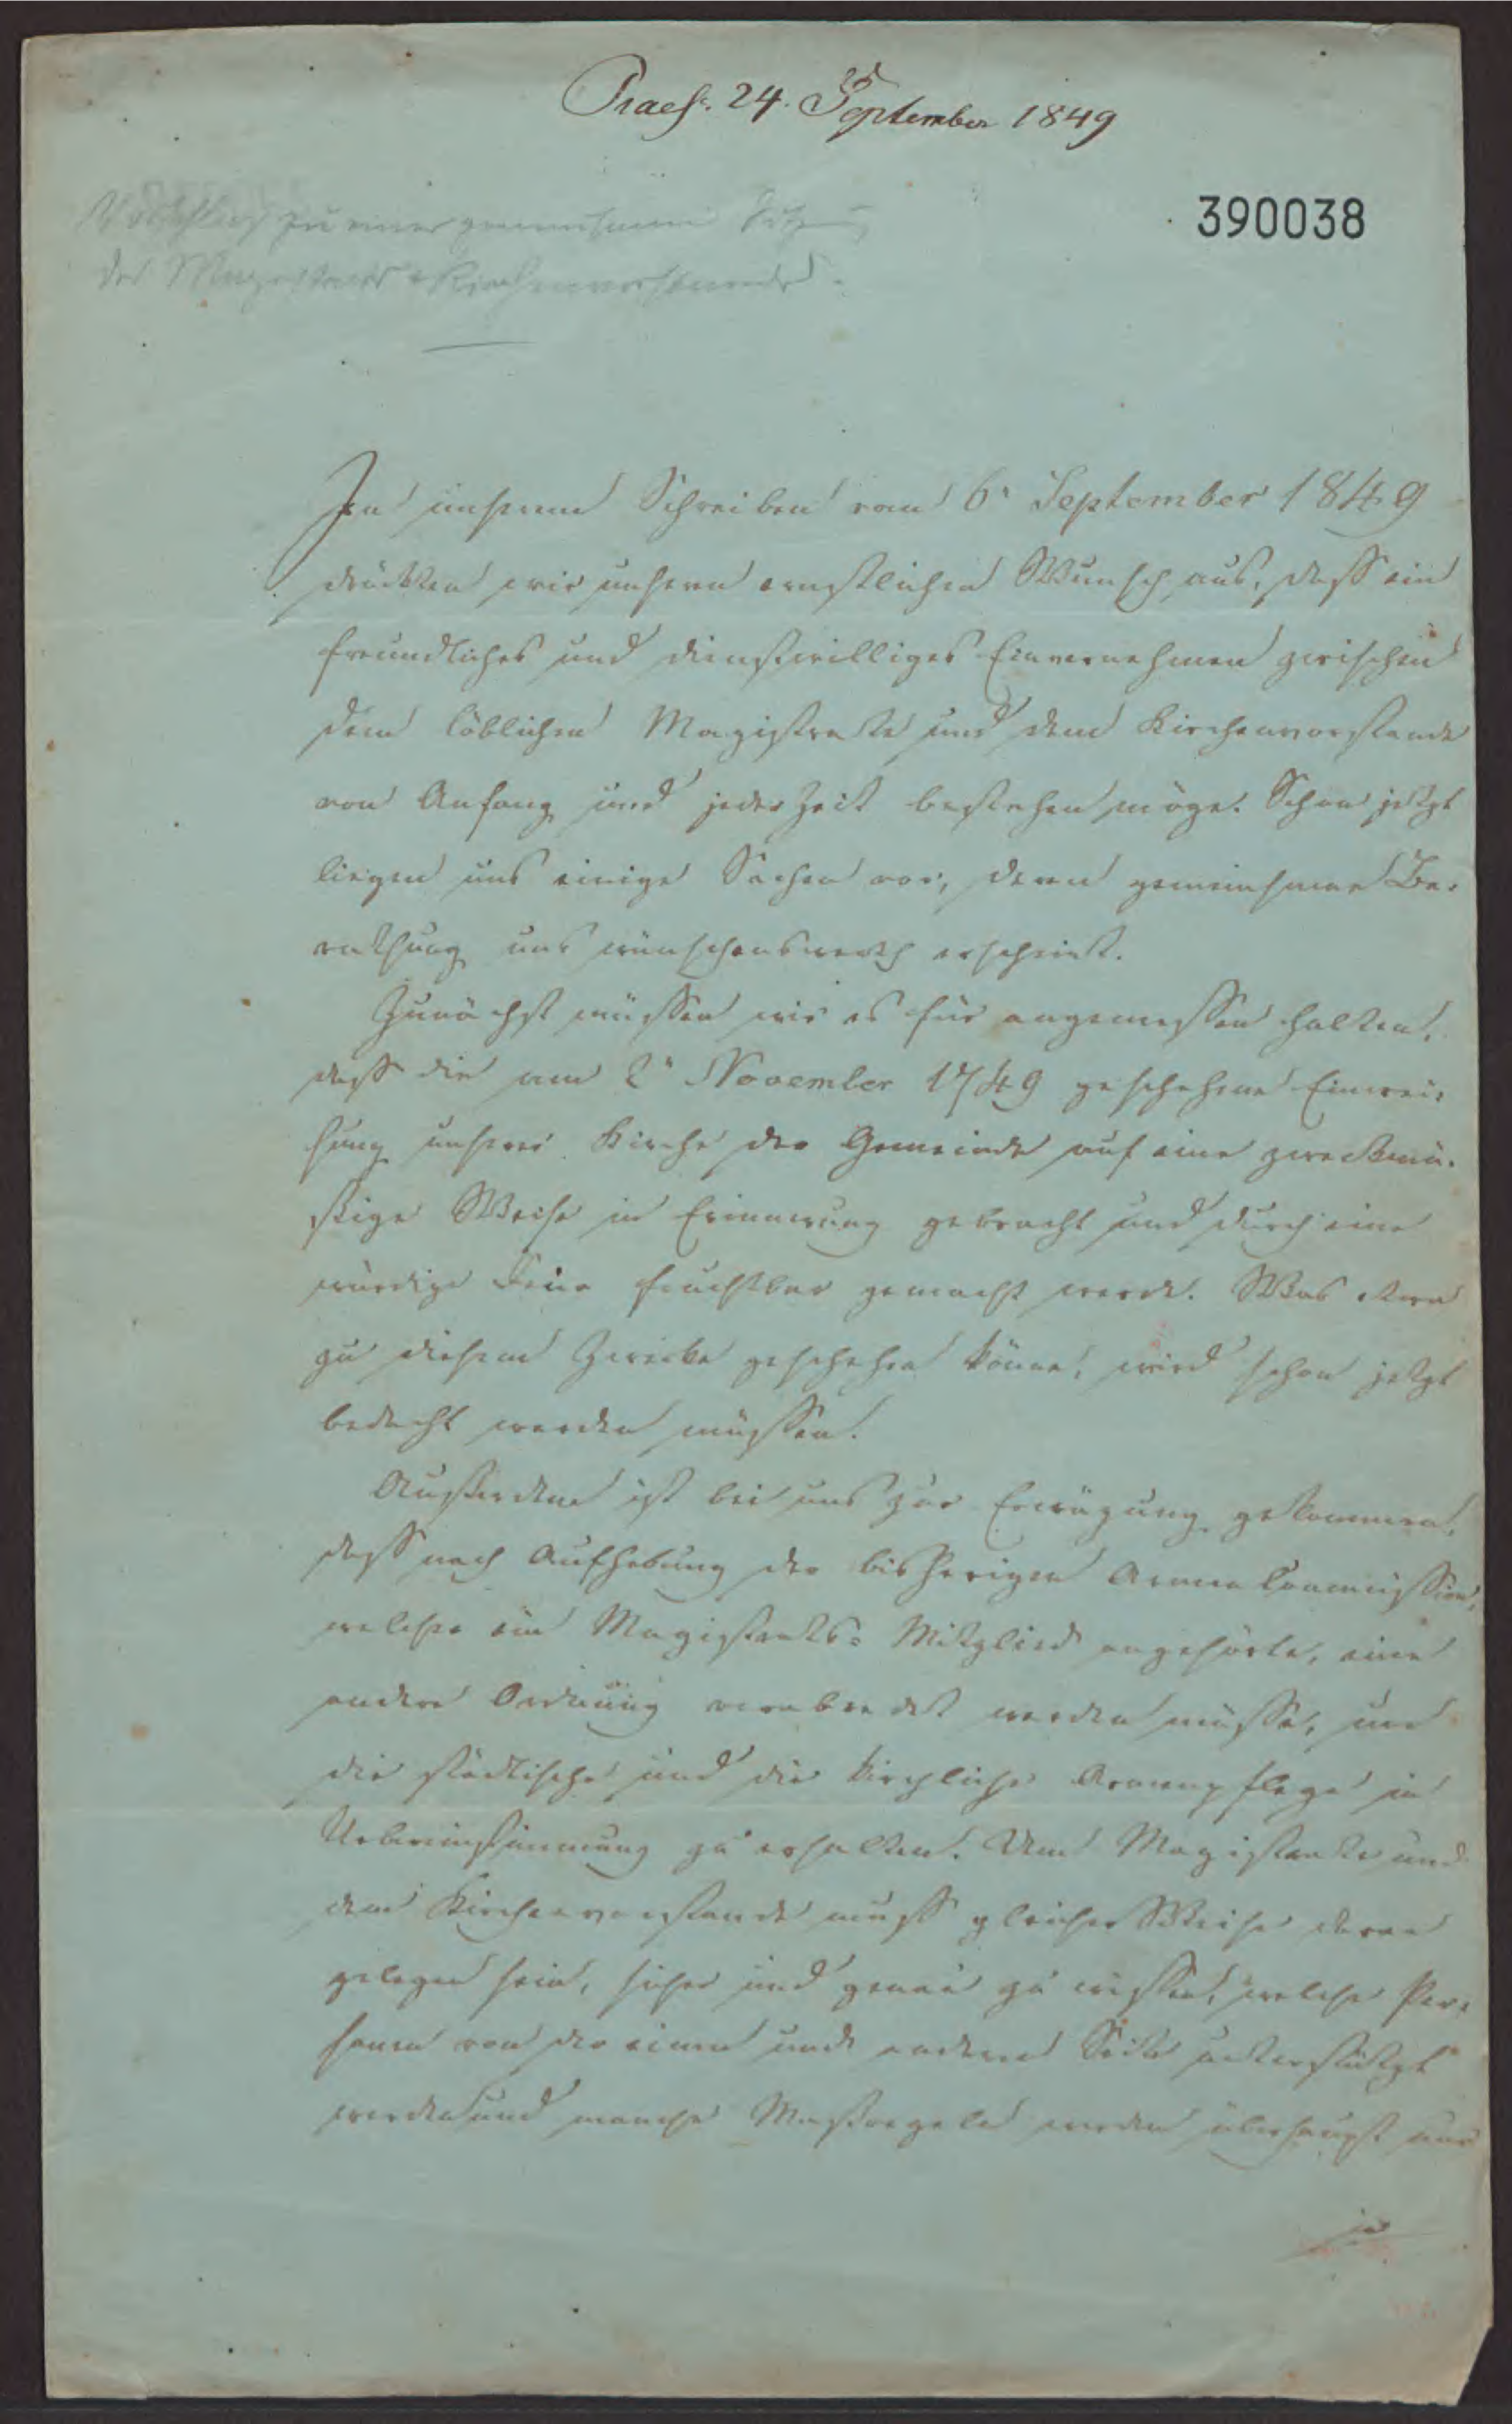 Praes. 24. September 1849
Vorschlag zu einer gemeinsamen Sitzung
des Magistrats & Kirchenvorstandes.
390038
In unserem Schreiben vom 6n September 1849
drückten wir unsern ernstlichen Wunsch aus, dass ein
freundliches und dienstwilliges Einvernehmen zwischen
dem löblichen Magistrate und dem Kirchenvorstande
von Anfang und jeder Zeit bestehen möge. Schon jetzt
liegen uns einige Sachen vor, deren gemeinsame Be-
rathung uns wünschenswerth erscheint.
Zunächst müssen wir es für angemessen halten,
dass die am 2n November 1749 geschehene Einwei-
hung unserer Kirche der Gemeinde auf eine zweckmä-
ssige Weise in Erinnerung gebracht und durch eine
würdige Feier fruchtbar gemacht werde. Was etwa
zu diesem Zwecke geschehen könne, wird schon jetzt
bedacht werden müssen.
Ausserdem ist bei uns zur Erwägung gekommen,
dass nach Aufhebung der bisherigen Armencommission,
welcher ein Magistrats-Mitglied angehörte, eine
andere Ordnung verabredet werden müsse, um
die städtische und die kirchliche Armenpflege in
Uebereinstimmung zu erhalten. Dem Magistrate und
dem Kirchenvorstande muss gleicher Weise daran
gelegen sein, sicher und genau zu wissen, welche Per-
sonen von der einen und anderen Seite unterstützt
werden und manche Massregeln werden überhaupt nur
in